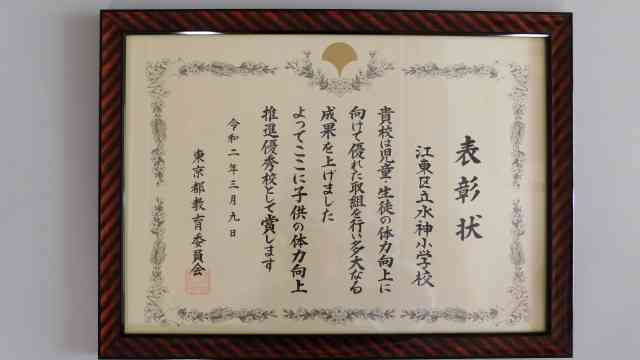 表彰状
江東区立水神小学校
貴校は児童・生徒の体力向上に
向けて優れた取組を行い多大なる
成果を上げました
よってここに子供の体力向上
推進優秀校として賞します
令和二年三月九日
東京都教育委員会